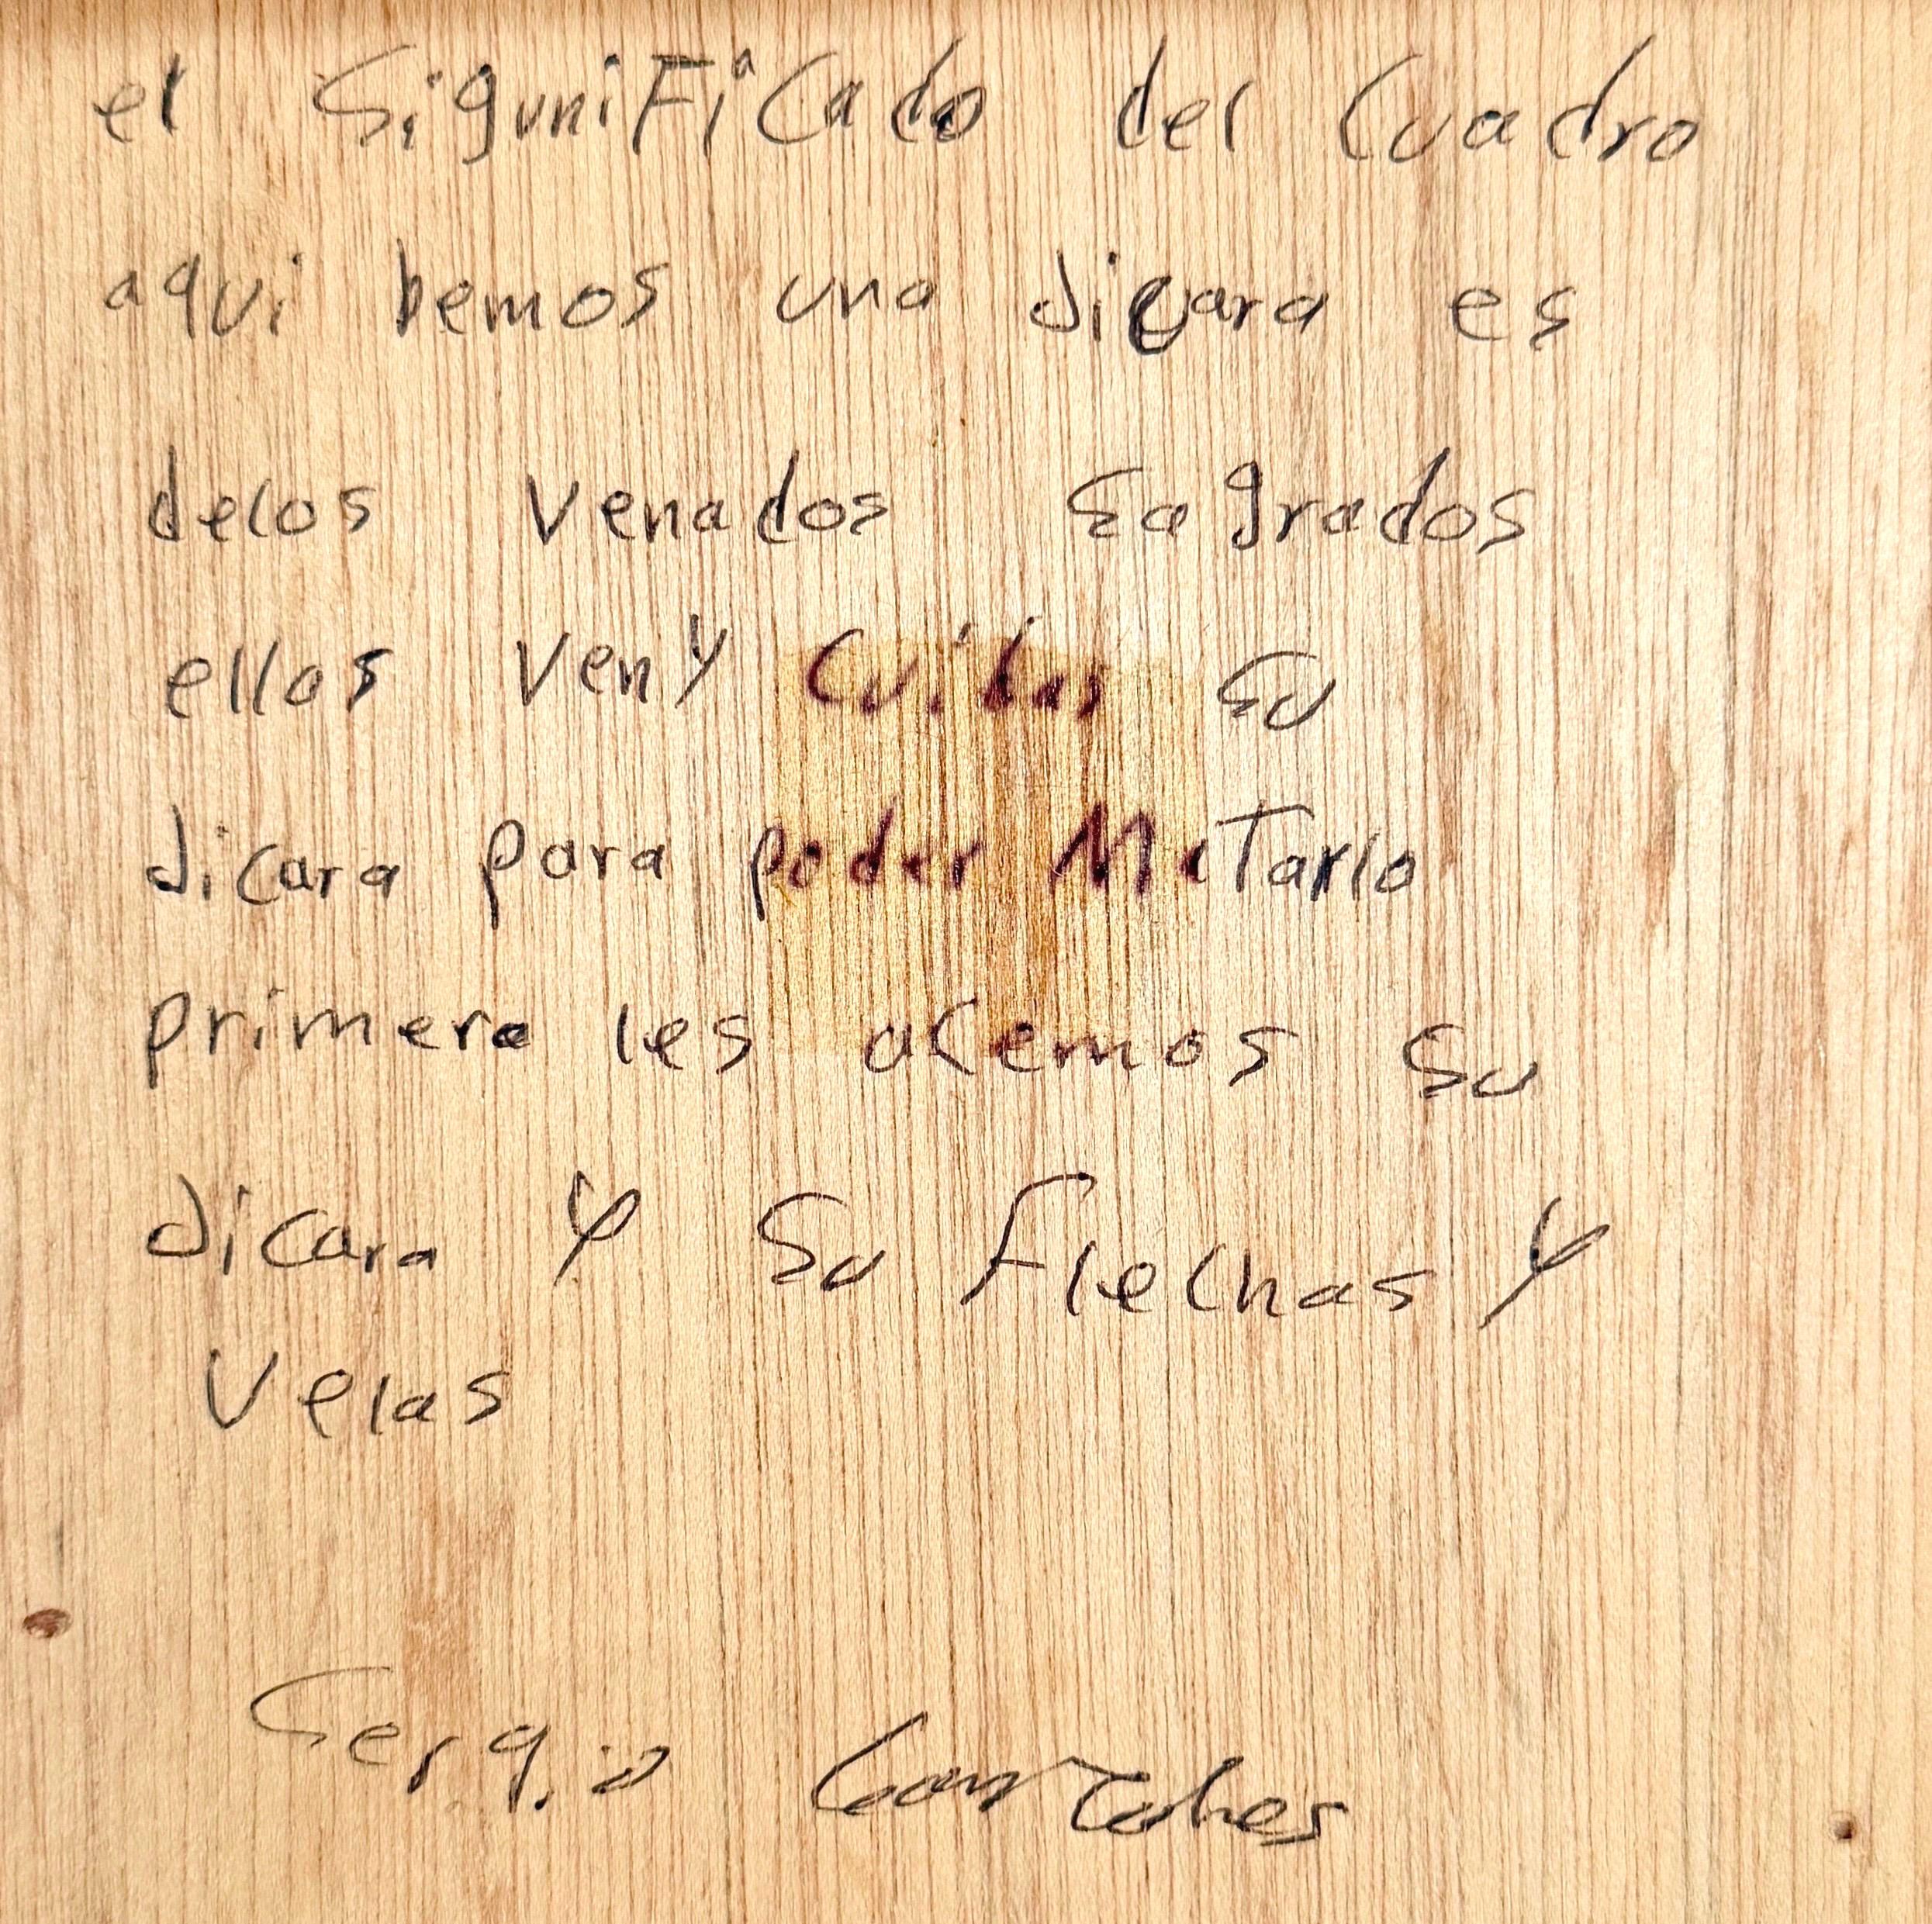 el SiguniFicado del Cuadro
aqui bemos una dicara es
delos venados Sagrados
ellos ven y Cuidas Su
dicara para poder Matarlo
primero les acemos Su
dicara y Su Flechas y
Velas
Sergio Gonzales